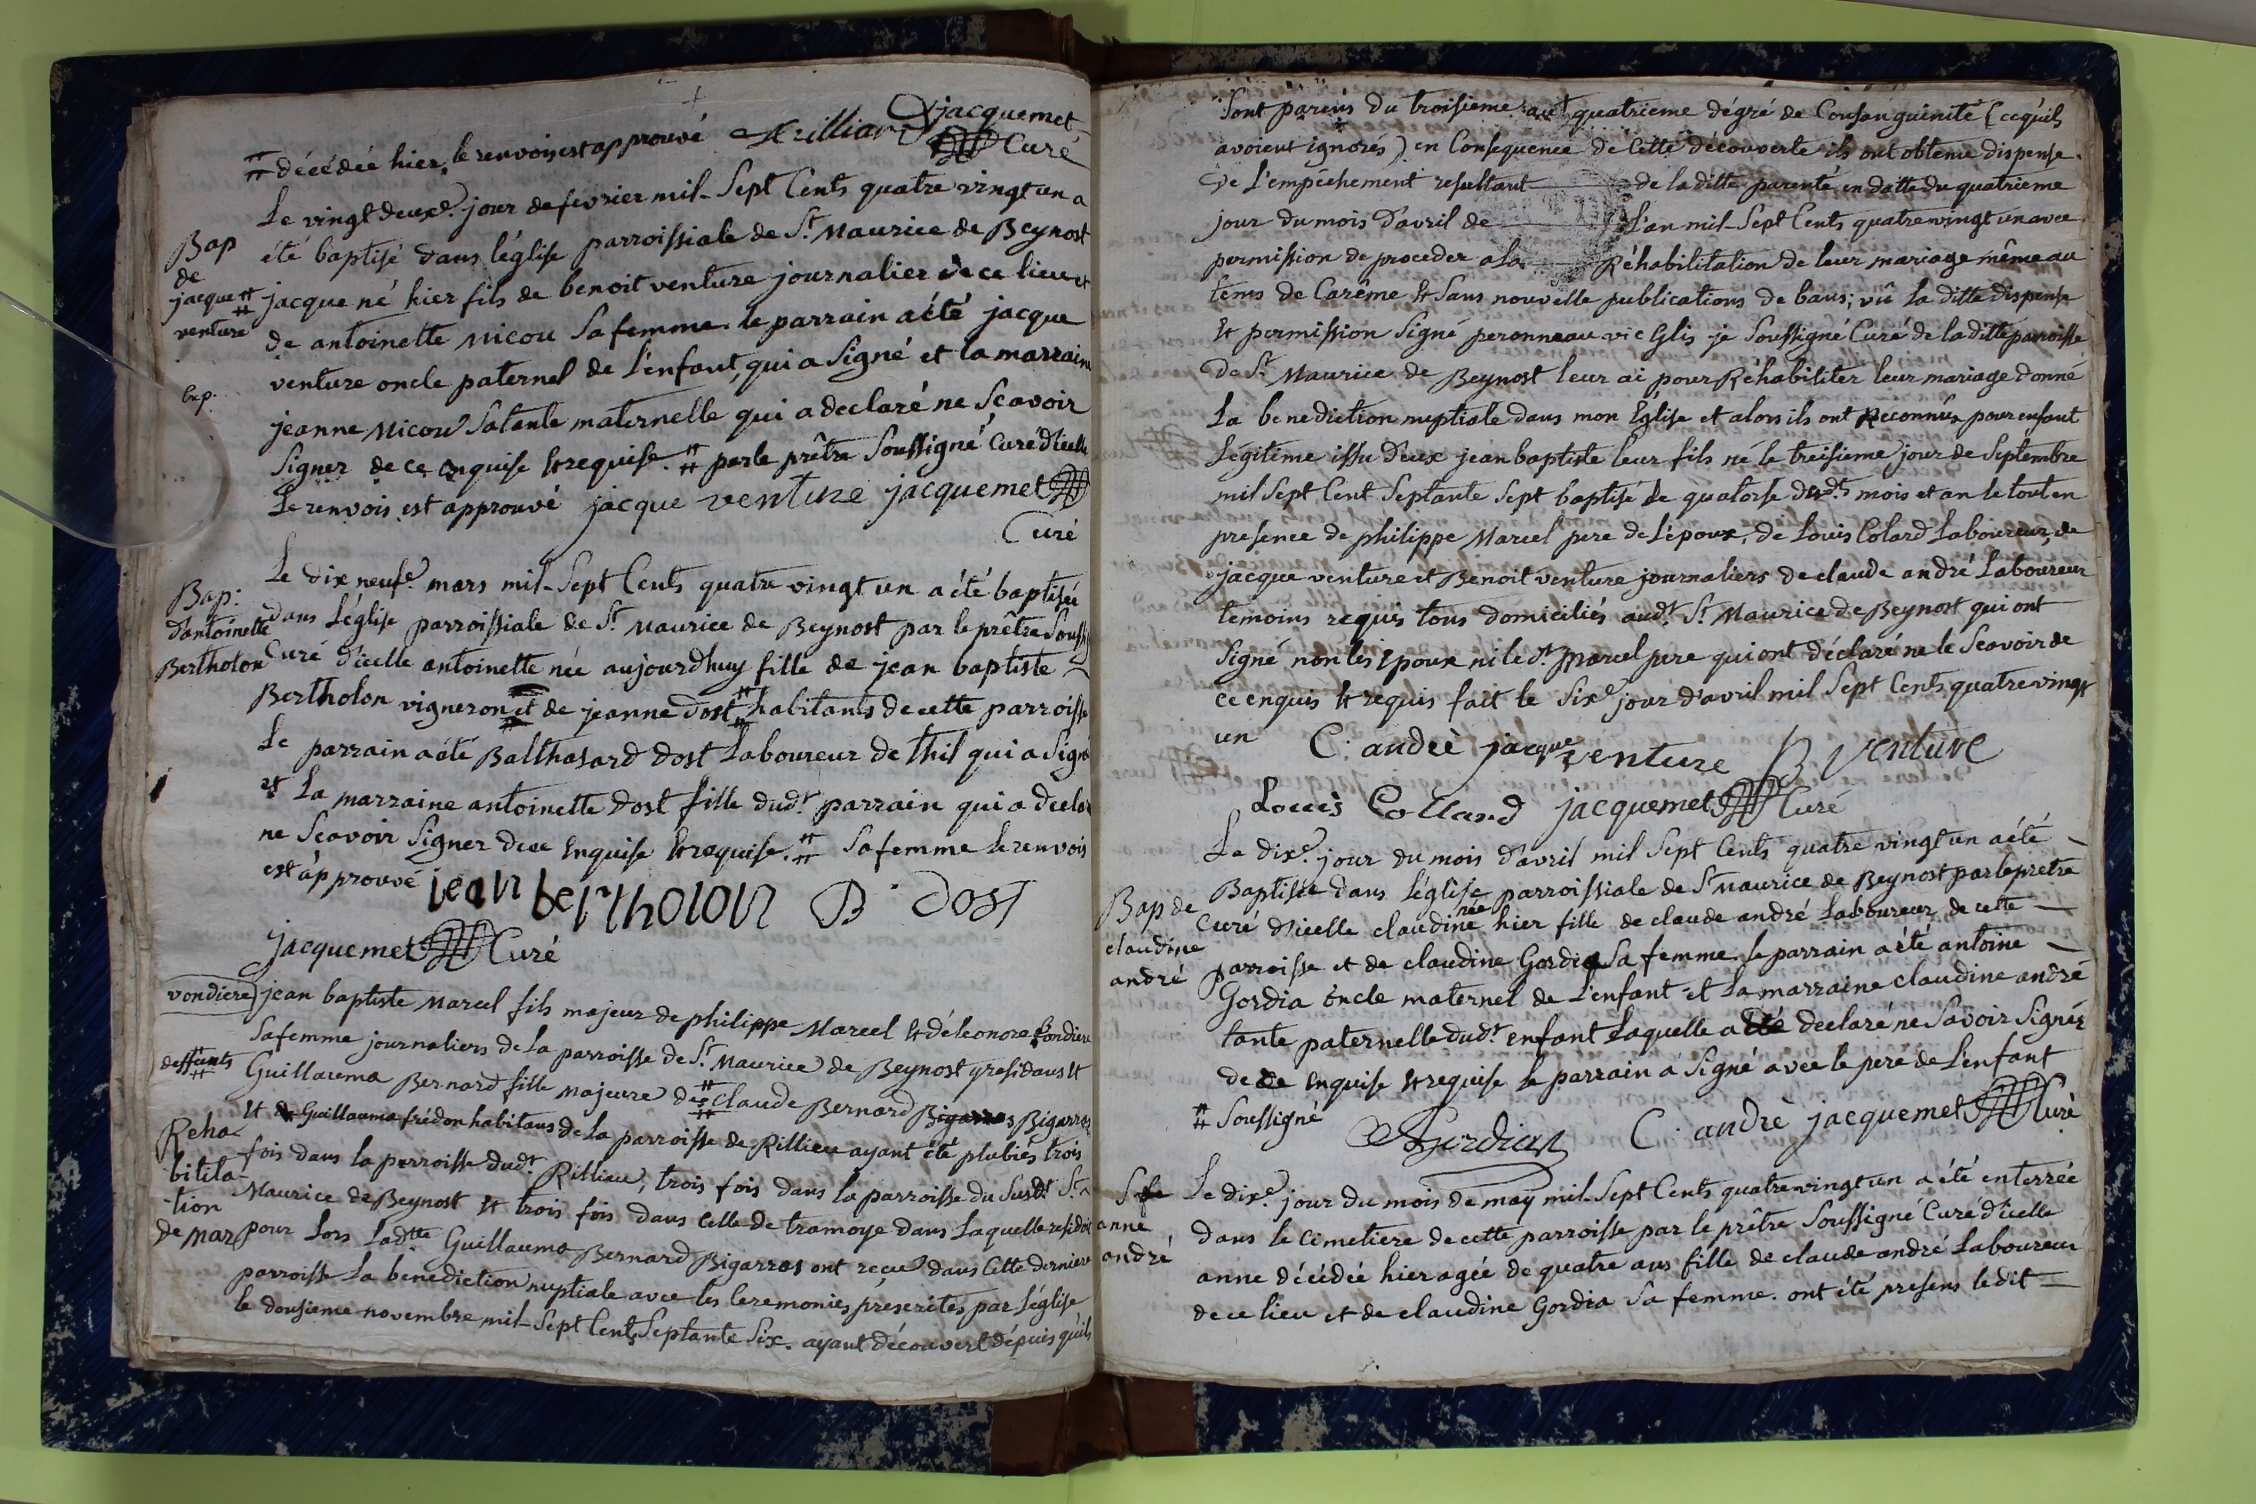 jacquemet
# décédée hier, le renvois est approuvé Curé
Le vingt deuxe. jour de fevrier mil-Sept Cents quatre vingt un a
Bap
de
jacque #
venture
été baptisé dans l'église parroissiale de St. Maurice de Beynost
jacque né hier fils de benoit venture journalier de ce lieu et
de antoinette Micou Sa femme. le parrain a été jacque
venture oncle paternel de L'enfant, qui a Signé et la marraine
jeanne Micou Sa tante maternelle qui a declaré ne Scavoir
Signer de ce enquise et requise. # par le prêtre Soussigné Curé d'icelle
Le renvois est approuvé jacque venture jacquemet
Curé
Bap:
d'antoinette
Bertholon
Le dix neufe. mars mil-Sept Cents quatre vingt un a été baptisée
dans L'église parroissiale de St. Maurice de Beynost par le prêtre Souss
Curé d'icelle antoinette née aujourdhuy fille de jean baptiste
Bertholon vigneron et de jeanne dost # habitants de cette parroisse
Le parrain a été Balthasard dost Laboureur de thil qui a Signé
et La marraine antoinette dost fille dudt. parrain qui a declaré
ne Scavoir Signer de ce Enquise et requise. # Sa femme le renvois
est approuvé jean bertholon B. dost
jacquemet Curé
vondiere
deffunts
Reha
bilita
-tion
de mar
jean baptiste Marcel fils majeur de philippe Marcel et d'éleonora fondiere
Sa femme journaliers de La parroisse de St. Maurice de Beynost y residans et
Guillauma Bernard fille majeure de # Claude Bernard Bigarras Bigarras
et de Guillauma frédon habitans de La parroisse de Rillieu ayant été plubiés trois
fois dans la parroisse dudt. Rillieu, trois fois dans la parroisse du Susdt. St.
Maurice de Beynost et trois fois dans Celle de tramoye dans Laquelle residoit
pour Lors Ladtte Guillauma Bernard Bigarras ont reçu dans Cette derniere
parroisse La benediction nuptiale avec les Ceremonies préscrites par L'église
le dousieme novembre mil-Sept Cents Septante Six. ayant découvert dépuis qu'ils
Sont parens du troisieme au quatrieme dégré de Consanguinité (ce qu'ils
avoient ignorés) en Consequence de Cette découverte ils ont obtenu dispense
de L'empêchement resultant de la ditte parenté en datte du quatrieme
jour du mois d'avril de L'an mil-Sept Cents quatre vingt un avec
permission de proceder a La Réhabilitation de leur mariage même au
tems de Carême et Sans nouvelle publications de bans; vû La ditte dispense
et permission Signé peronneau vic Glis je Soussigné Curé de la ditte parroisse
de St. Maurice de Beynost leur ai pour Réhabiliter leur mariage donné
La benediction nuptiale dans mon Église et alors ils ont Reconnus pour enfant
Légitime issu d'eux jean baptiste leur fils né le treisieme jour de Septembre
mil Sept Cent Septante Sept baptisé le quatorse desdts mois et an le tout en
presence de philippe Marcel pere de L'époux, de Louis Colard Laboureur, de
jacque venture et Benoit venture journaliers de claude andré Laboureur
temoins requis tous domiciliés audt. St. Maurice de Beynost qui ont
Signé non les Epoux ni ledt. Marcel pere qui ont déclaré ne le Scavoir de
ce enquis et requis fait le Sixe jour d'avril mil Sept Cents quatre vingt
un C. andrè jacque venture B venture
Louis Colland jacquemet Curé
Bap de
claudine
andré
Le dixe. jour du mois d'avril mil Sept Cents quatre vingt un a été
Baptisée dans l'église parroissiale de St Maurice de Beynost par le prêtre
Curé d'icelle claudine née hier fille de claude andré Laboureur de cette
parroisse et de claudine Gordia Sa femme. le parrain a été antoine
Gordia oncle maternel de L'enfant et La marraine claudine andré
tante paternelle dudt. enfant Laquelle a declaré ne Savoir Signer
de ce Enquise et requise le parrain a Signé avec le pere de L'enfant
# Soussigné
AGordian C. andrè jacquemet Curé
anne
andré
Le dixe. jour du mois de may mil-Sept Cents quatre vingt un a été enterrée
dans le Cimetiere de cette parroisse par le prêtre Soussigné Curé d'icelle
anne décédée hier agée de quatre ans fille de claude andré Laboureur
de ce lieu et de claudine Gordia Sa femme. ont été presens ledit